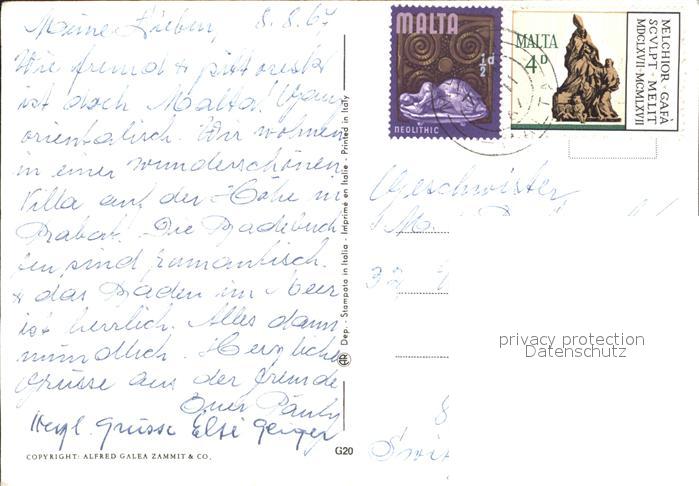 Meine Lieben, 8.8.67
Wie fremd & pittoresk
ist doch Malta! Ganz
orientalisch. Wir wohnen
in einer wunderschönen
Villa auf der Höhe in
Rabat. Die Badebuch
ten sind romantisch.
& das Baden im Meer
ist herrlich. Alles dann
mündlich. Herzliche
Grüsse aus der Fremde
Euer Pauly
Herzl. Grüsse Elsi Geiger
COPYRIGHT: ALFRED GALEA ZAMMIT & CO.
G20
Dep. - Stampato in Italia - Imprimé en Italie - Printed in Italy
MALTA
½d
NEOLITHIC
MALTA
4D
MELCHIOR · GAFÀ
SCVLPT · MELIT
MDCLXVII-MCMLXVII
Geschwister
M.
32
8
privacy protection
Datenschutz